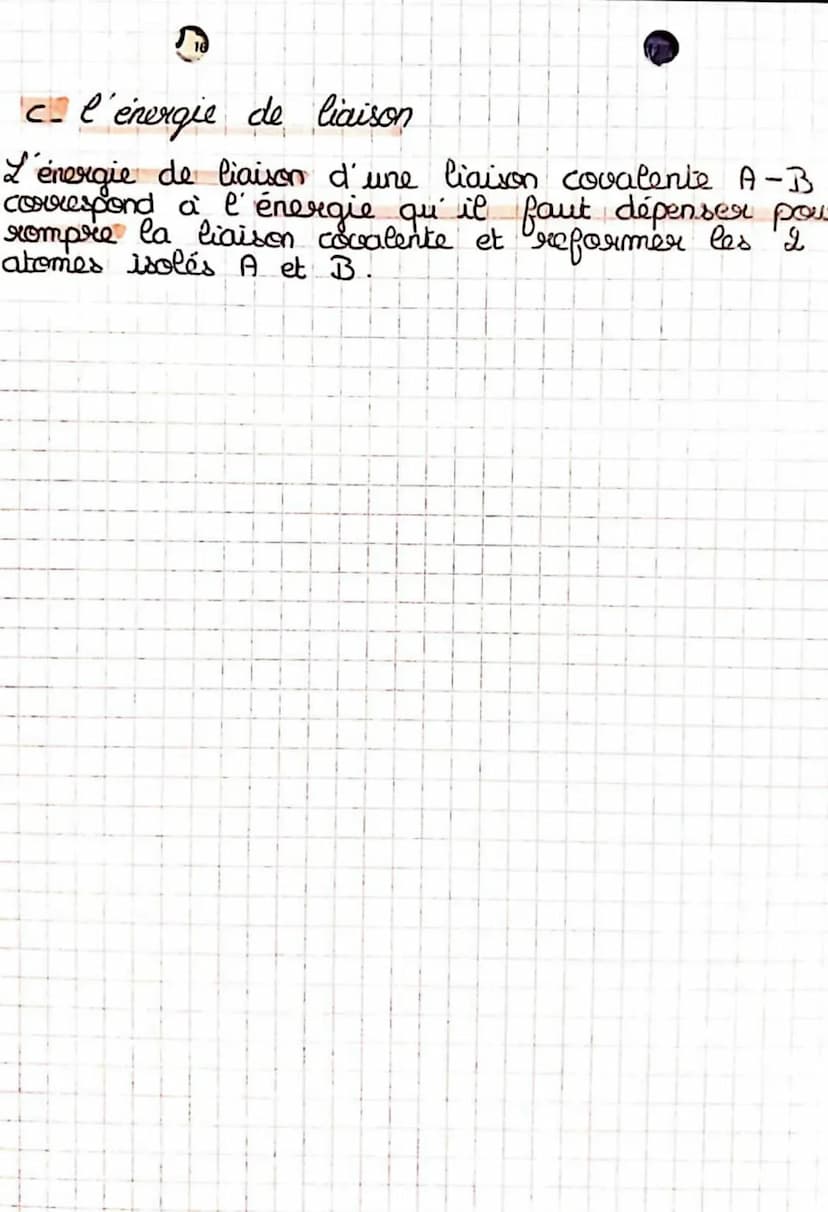 c- l'énergie de liaison
L'énergie de liaison d'une liaison covalente A-B
correspond à l'énergie qu'il faut dépenser pou
rompre la liaison covalente et reformer les 2
atomes isolés A et B.